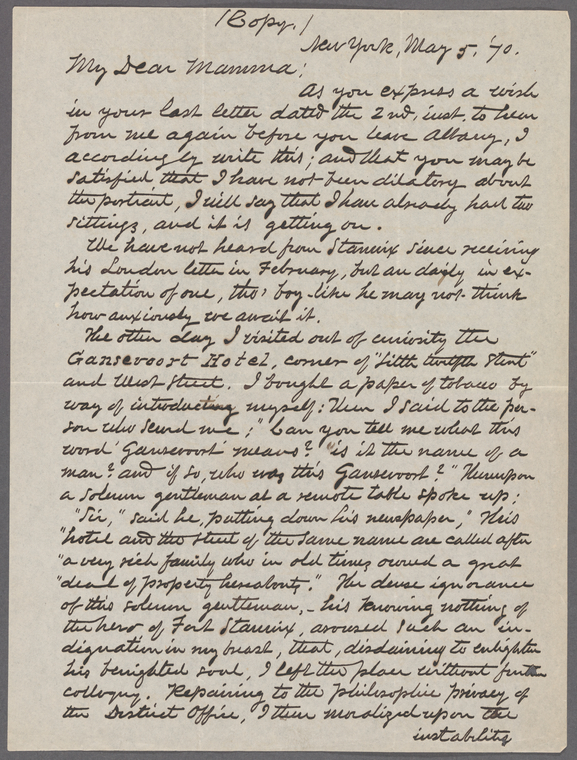 (Copy.)
New York, May 5, '70.
My Dear Mamma;
As you express a wish
in your last letter dated the 2nd. inst. to hear
from me again before you leave Albany, I
accordingly write this; and that you may be
satisfied that I have not been dilatory about
the portrait, I will say that I have already had two
sittings, and it is getting on.
We have not heard from Stanwix since receiving
his London letter in February, but are daily in ex-
pectation of one, tho' boy-like he may not think
how anxiously we await it.
The other day I visited out of curiosity the
Gansevoort Hotel, corner of "Little twelfth Street"
and West Street. I bought a paper of tobacco by
way of introducting myself: Then I said to the per-
son who served me; "Can you tell me what this
word 'Gansevoort' means? is it the name of a
man? and if so, who was this Gansevoort?" Thereupon
a solemn gentleman at a remote table spoke up:
"Sir," said he, putting down his newspaper, "This
"hotel and the street of the same name are called after
"a very rich family who in old times owned a great
"deal of property hereabouts." The dense ignorance
of this solemn gentleman, – his knowing nothing of
the hero of Fort Stanwix, aroused such an in-
dignation in my breast, that, disdaining to enlighten
his benighted soul, I left the place without further
colloquy. Repairing to the philosophic privacy of
the District Office, I then moralized upon the
instability